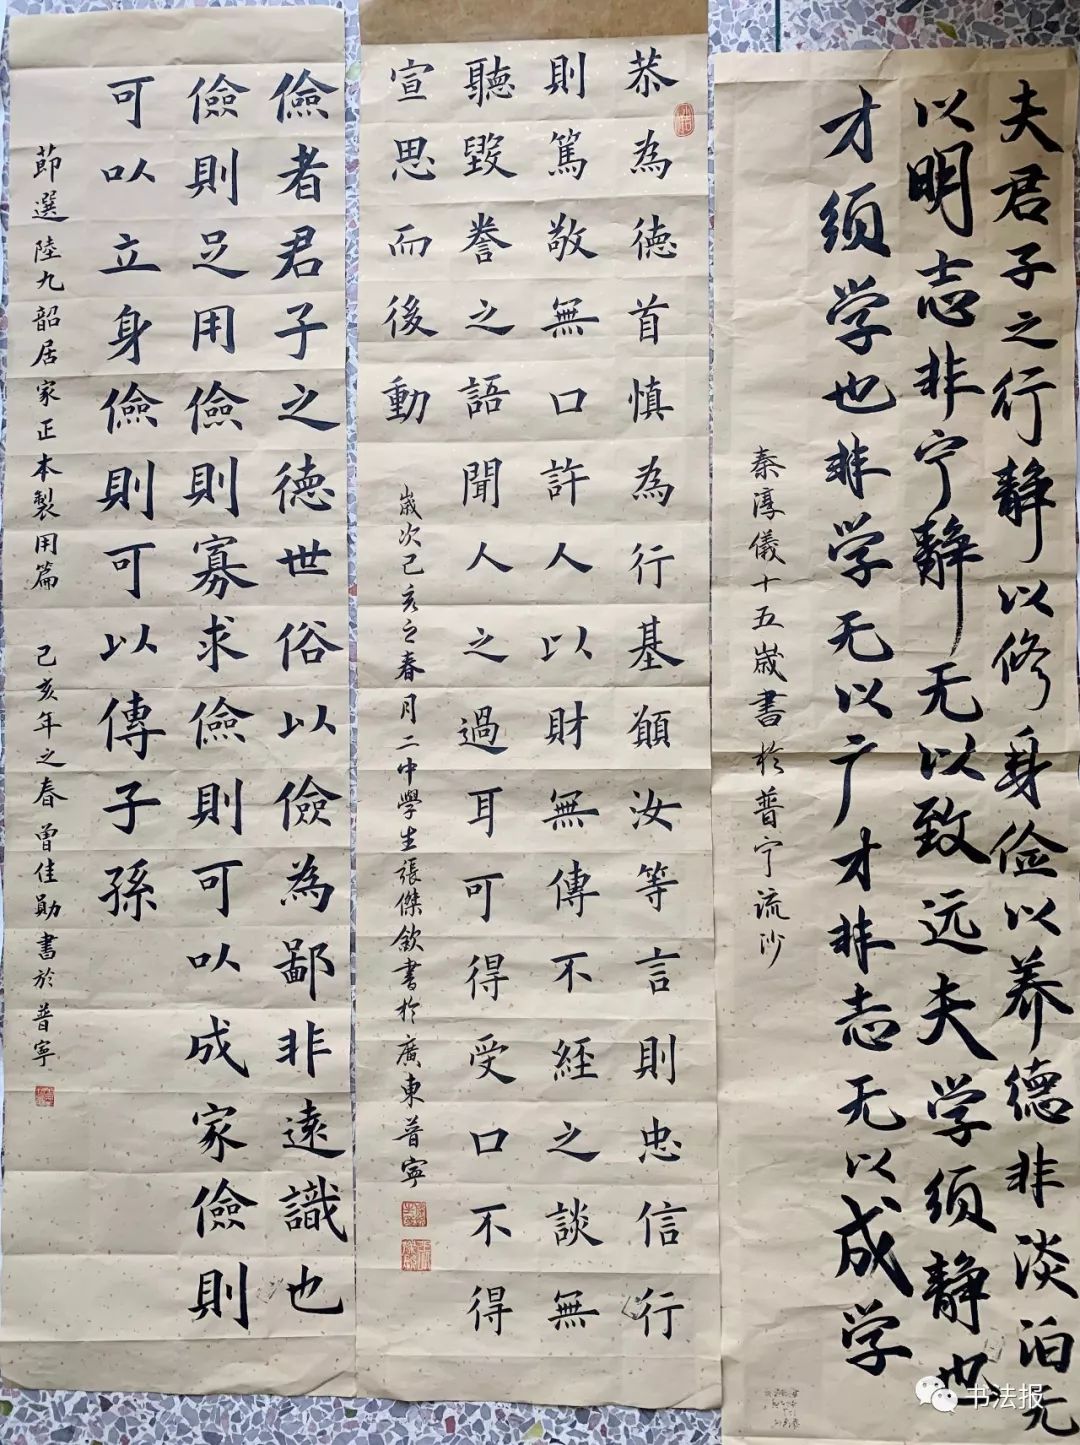 夫君子之行静以修身俭以养德非淡泊无
以明志非宁静无以致远夫学须静也
才须学也非学无以广才非志无以成学
秦淳儀十五歲書於普宁流沙
恭為德首慎為行基願汝等言則忠信行
則篤敬無口許人以財無傳不經之談無
聽毀誉之語聞人之過耳可得受口不得
宣思而後動
歲次己亥之春月二中學生張傑欽書於廣東普寧
儉者君子之德世俗以儉為鄙非遠識也
儉則足用儉則寡求儉則可以成家儉則
可以立身儉則可以傳子孫
節選陸九韶居家正本製用篇 己亥年之春曾佳勋書於普寧
书法报